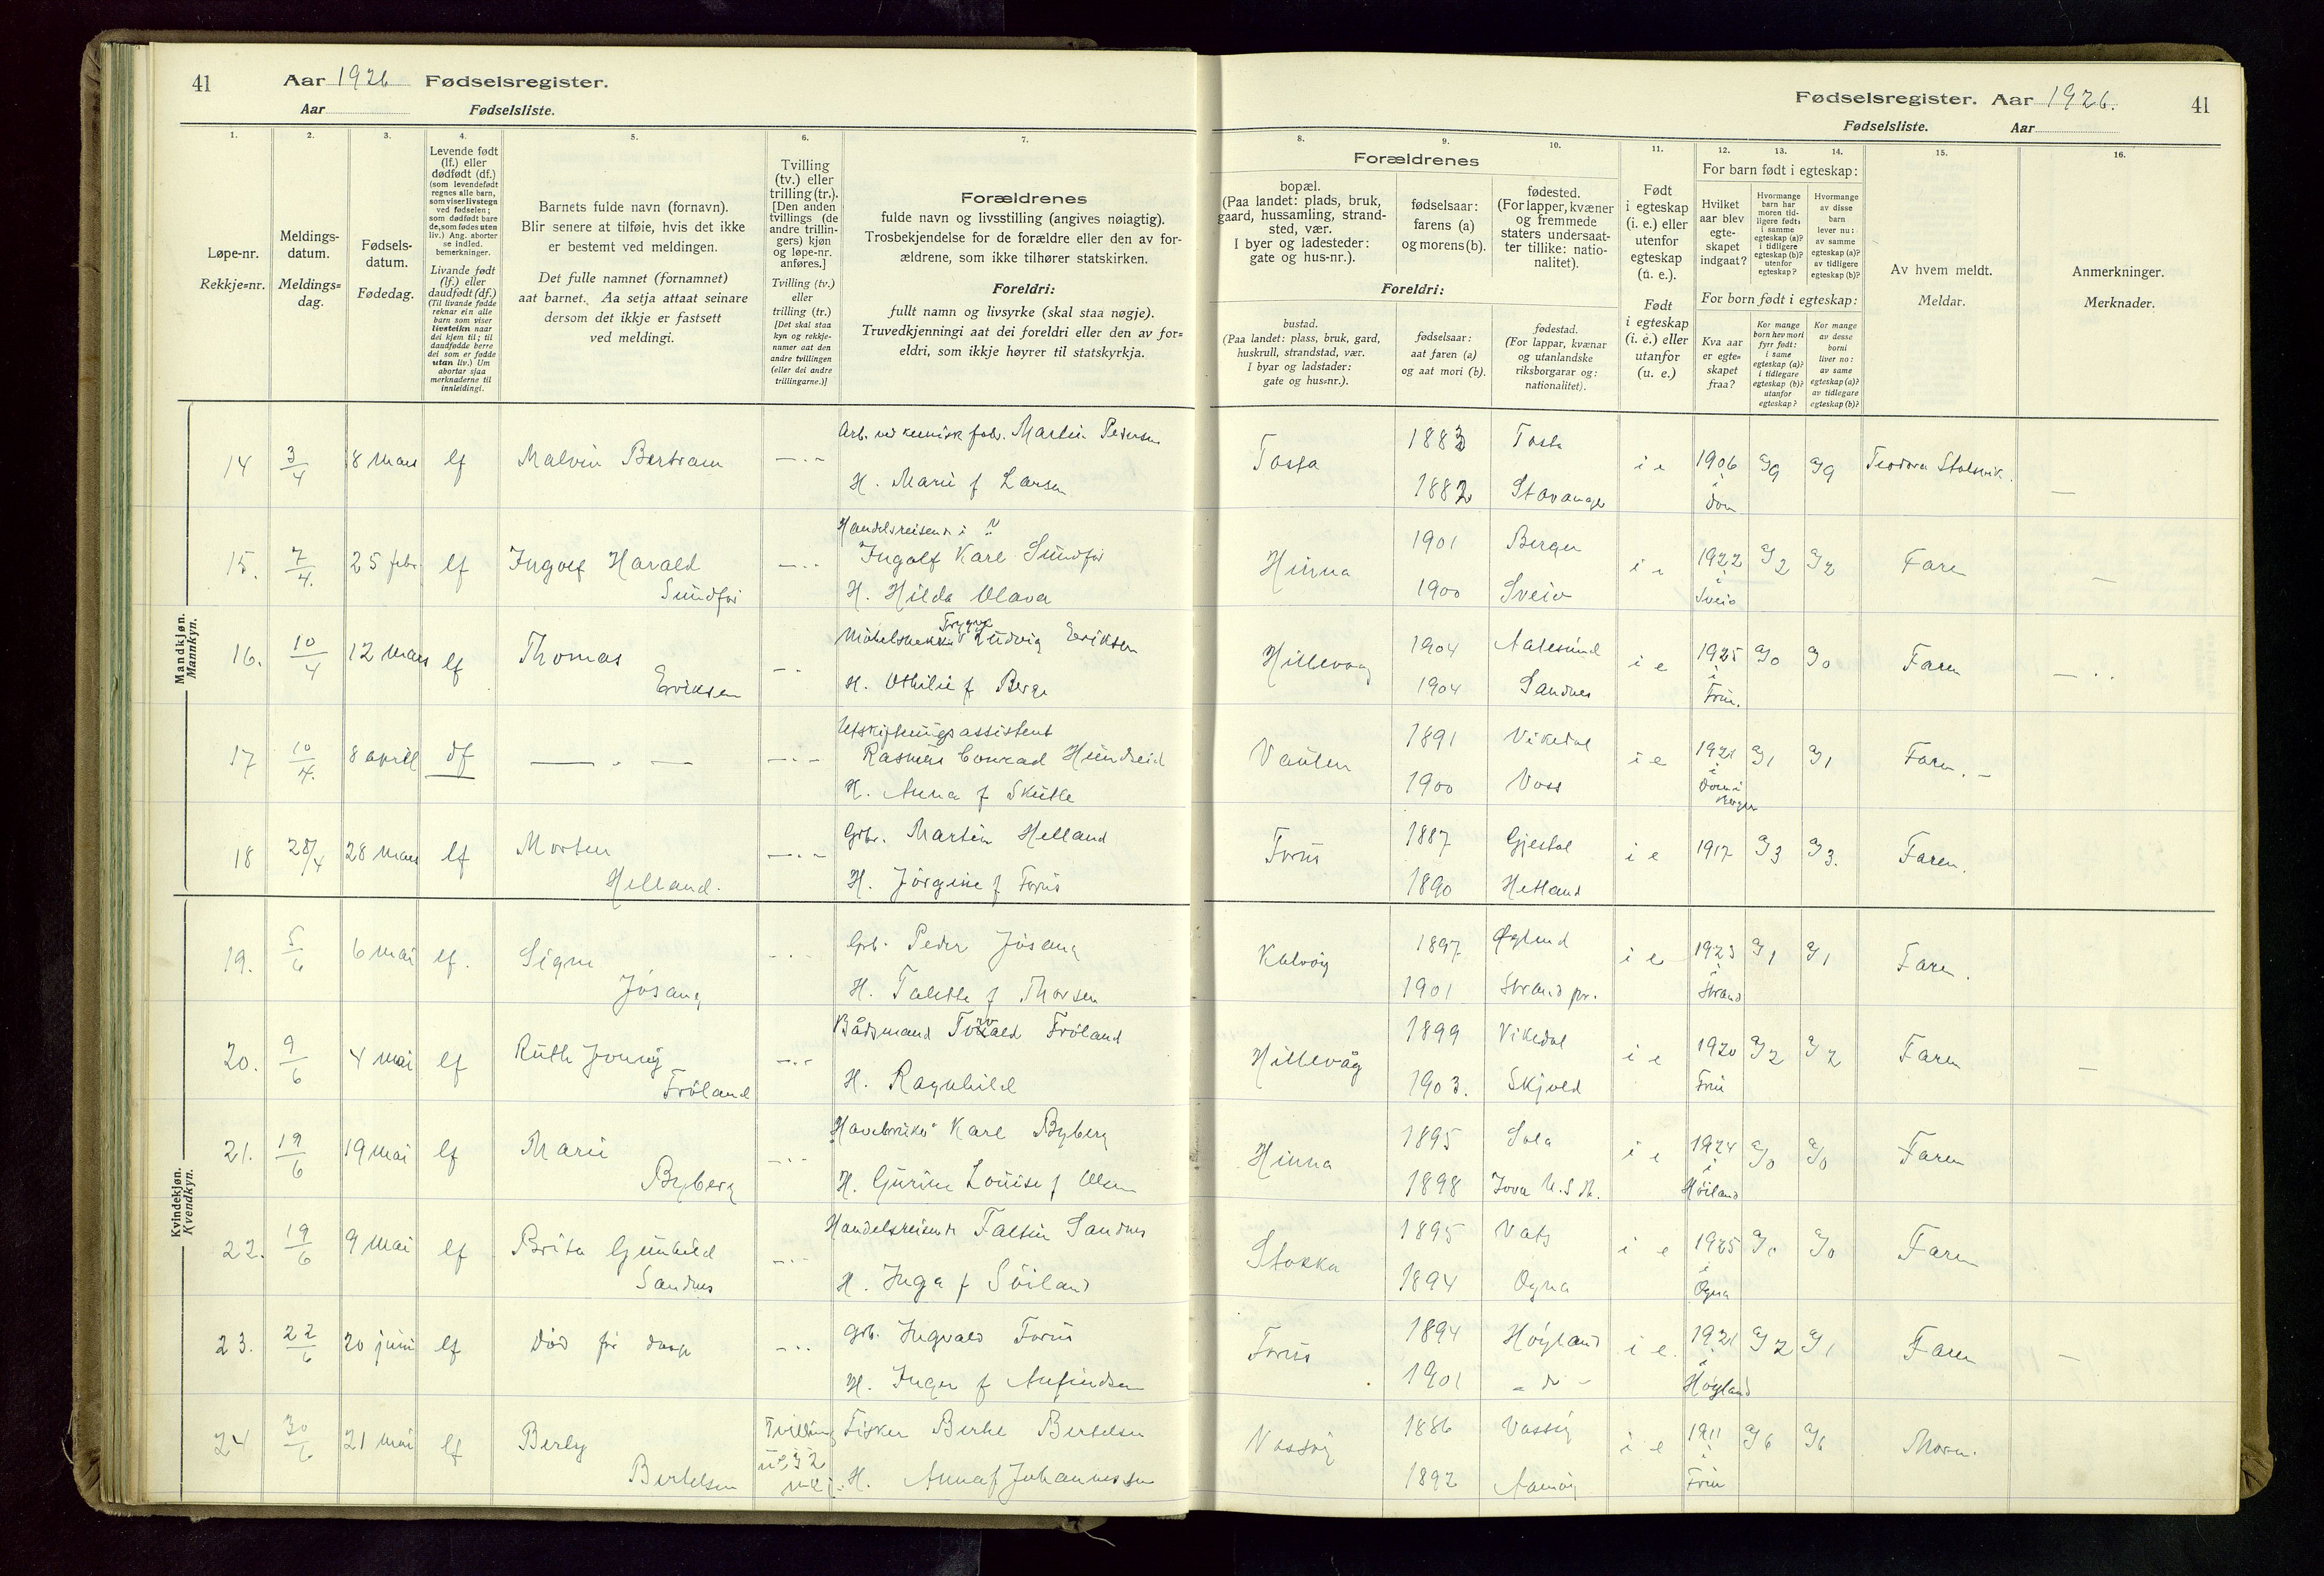 41
Aar 1926 Fødselsregister.
Aar Fødselsliste.
Fødselsregister. Aar 1926.
Fødselsliste. Aar
41
1. 2. 3. 4. 5. 6. 7. 8. 9. 10. 11. 12. 13. 14. 15. 16.
Løpe-nr.
Rekkje=nr.
Meldings-
datum.
Meldings=
dag.
Fødsels-
datum.
Fødedag.
Levende født
(lf.) eller
dødfødt (df.)
(som levendefødt
regnes alle barn,
som viser livstegn
ved fødselen;
som dødfødt bare
de, som fødes uten
liv.) Ang. aborter
se indled.
bemerkninger.
Livande født
(lf.) eller
daudfødt (df.)
(Til livande fødde
reknar ein alle
barn som viser
livsteikn naar
dei kjem til; til
daudfødde berre
dei som er fødde
utan liv.) Um
abortar sjaa
merknaderne til
innleidingi.
Barnets fulde navn (fornavn).
Blir senere at tilføie, hvis det ikke
er bestemt ved meldingen.
Det fulle namnet (fornamnet)
aat barnet. Aa setja attaat seinare
dersom det ikkje er fastsett
ved meldingi.
Tvilling
(tv.) eller
trilling (tr.).
[Den anden
tvillings (de
andre trillin-
gers) kjøn
og løpe-nr.
anføres.]
Tvilling (tv.)
eller
trilling (tr.)
[Det skal staa
kyn og rekkje-
numer aat den
andre tvillingen
(eller dei andre
trillingarne.)]
Forældrenes
fulde navn og livsstilling (angives nøiagtig).
Trosbekjendelse for de forældre eller den av for-
ældrene, som ikke tilhører statskirken.
Foreldri:
fullt namn og livsyrke (skal staa nøgje).
Truvedkjenningi aat dei foreldri eller den av for=
eldri, som ikkje høyrer til statskyrkja.
Forældrenes
bopæl.
(Paa landet: plads, bruk,
gaard, hussamling, strand-
sted, vær.
I byer og ladesteder:
gate og hus-nr.).
fødselsaar:
farens (a)
og morens (b).
fødested.
(For lapper, kvæner
og fremmede
staters undersaat-
ter tillike: natio-
nalitet).
Foreldri:
bustad.
(Paa landet: plass, bruk, gard,
huskrull, strandstad, vær.
I byar og ladstader:
gate og hus=nr.).
fødselsaar:
aat faren (a)
og aat mori (b).
fødestad.
(For lappar, kvænar
og utanlandske
riksborgarar og:
nationalitet).
Født
i egteskap
(i. e.) eller
utenfor
egteskap
(u. e.).
Født
i egteskap
(i. e.) eller
utanfor
(u. e.)
For barn født i egteskap:
Hvilket
aar blev
egte-
skapet
indgaat?
Hvormange
barn har
moren tid-
ligere født:
i samme
egteskap (a)?
i tidligere
egteskap (b)?
utenfor
egteskap?
Hvormange
av disse
barn
lever nu:
av samme
egteskap (a)?
av tidligere
egteskap (b)?
For born født i egteskap:
Kva aar
er egte=
skapet
fraa?
Kor mange
born hev mori
fyrr født:
i same
egteskap (a)?
i tidlegare
egteskap (b)?
utanfor
egteskap?
Kor mange
av desse
borni
liver no:
av same
egteskap (a)?
av tidlegare
egteskap (b)?
Av hvem meldt.
Meldar.
Anmerkninger.
Merknader.
Mandkjøn.
Mannkyn.
14 3/4 8 mars lf Malvin Bertram
Martin Pedersen
H. Marie f Larsen
Tasta 1883 Tasta
1882 Stavanger
i e 1906 a/9 a/9
15. 7/4. 25 febr lf Ingolf Harald
Sundfør
Handelsreisende i ?
Ingolf Karl Sundfør
H. Hilda Olava
Hinna 1901 Bergen
1900 Sveio
i e 1922 i Sveio a/2 a/2 Faren
16. 10/4 12 mars lf Thomas
Eriksen
Trygve
Ludvig Eriksen
H. Othilie f Berge
Hillevåg 1904 Aalesund
1904 Sandnes
i e 1925 i Frue. a/0 a/0 Faren
17 10/4. 8 april df
Utskiftningsassistent
Rasmus Conrad Hundseid
H. Anna f Skutle
Vaulen 1891 Vikedal
1900 Voss
i e 1921 i Bergen a/1 a/1 Faren.
18 28/4 28 mars lf Morten
Helland.
Gbr. Martin Helland
H. Jørgine f Forus
Forus 1887 Gjestal
1890 Hetland
i e 1917 a/3 a/3. Faren.
Kvindekjøn.
Kvendkyn.
19. 5/6 6 mai lf. Signe
Jøsang
Grb. Peder Jøsang
H. Talette f Thorsen
1897
1901 Strand pr.
i e 1923 i Strand a/1 a/1 Faren.
20. 9/6 4 mai lf Ruth Jonny
Frøland
Bådsmand Torvald Frøland
H. Ragnhild
Hillevåg 1899 Vikedal
1903. Skjold
i e 1920 Frue a/2 a/2 Faren
21. 19/6 19 mai lf Marie
Byberg
Karl Byberg
H. Gurine Louise f Olsen
Hinna 1895 Sola
1898 Iova U.S.A.
i e 1924 i Høiland a/0 a/0 Faren
22. 19/6 9 mai lf Brita Gunhild
Sandnes
Handelsreisende Faltin Sandnes
H. Inga f Søiland
Stokka 1895 Vats
1894 Ogna
i e 1925 i Ogna a/0 a/0 Faren
23. 22/6 20 juni lf Død før daap
Grb. Ingvald Forus
H. Inger f Anfindsen
Forus 1894 Høyland
1901 - do -
i e. 1921 i Høyland a/2 a/1 Faren
24 30/6 21 mai lf Berly
Bertelsen
Tvilling
Fisker Bertel Bertelsen
H. Anna f Johannessen
Vassøy 1886 Vassøy
1892 Aamøy
i e 1911 i Frue a/6 a/6 Moren.